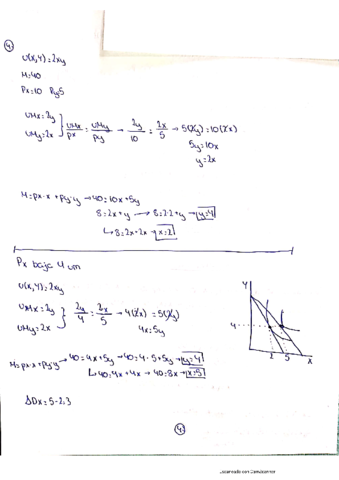 4.
U(x,y)=2xy
M=40
Px=10 Py5
UMx=2y
UMy=2x
UMx/Px = UMy/Py → 2y/10 = 2x/5 → 5(2y)=10(2x)
5y=10x
y=2x
M=px·x+py·y → 40=10x+5y
8=2x+y → 8=2·2+y → y=4
↳ 8=2x+2x → x=2
Px baja 4 um
U(x,y)=2xy
UMx=2y
UMy=2x
2y/4 = 2x/5 → 4(2x)=5(2y)
4x=5y
M=px·x+py·y → 40=4x+5y → 40=4·5+5y → y=4
↳ 40=4x+4x → 40=8x → x=5
ΔDx=5-2,3
Y
4
2 5 X
4.
Escaneado con CamScanner